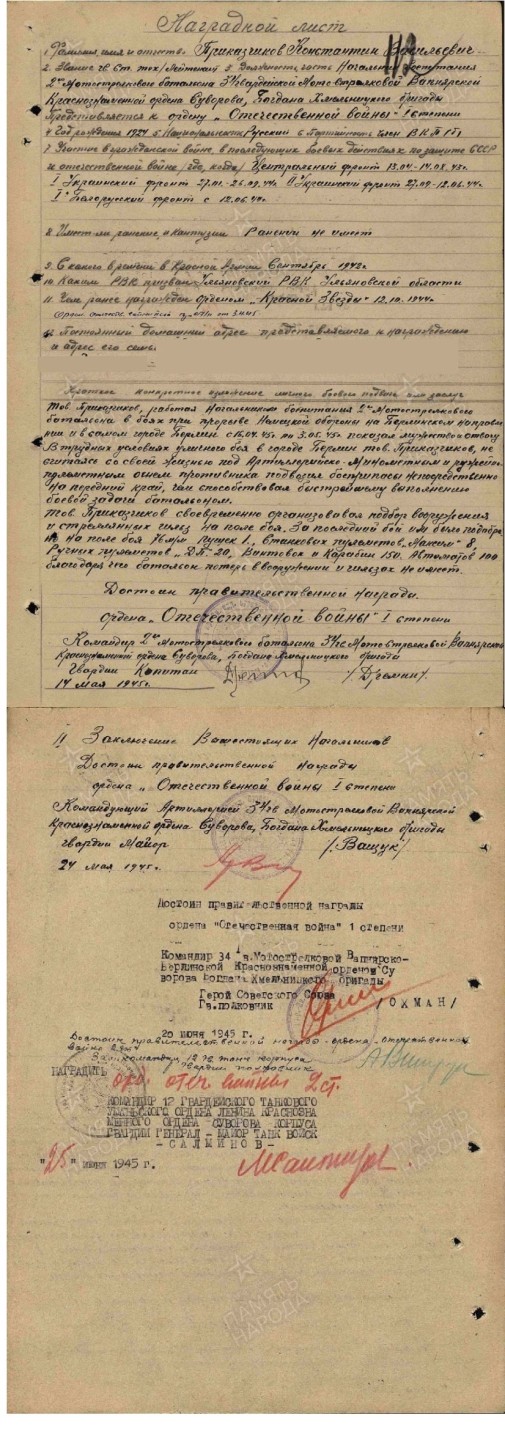 Наградной лист
112
1. Фамилия, имя и отчество Приказчиков Константин Васильевич
2. Звание гв. Ст. тех/Лейтенант 3. Должность, часть Начальник боепитания
2го Мотострелкового батальона 34 гвардейской Мото-стрелковой Вапнярской
Краснознаменной ордена Суворова, Богдана Хмельницкого бригады
Представляется к ордену „Отечественной Войны" I степени
4. Год рождения 1924 5. Национальность Русский 6. Партийность член ВКП(б)
7. Участие в гражданской войне, в последующих боевых действиях по защите СССР
и отечественной войне (где, когда) Центральный фронт 13.04-14.08.43г.
I Украинский фронт 27.01-26.09.44г. II Украинский фронт 27.09-12.06.44г.
Iй Белорусский фронт с 12.06.44г.
8. Имеет ли ранения и контузии Ранений не имеет
9. С какого времени в Красной Армии Сентябрь 1942г.
10. Каким РВК призван Ульяновский РВК Ульяновской области
11. Чем ранее награжден орденом „Красной Звезды" 12.10.1944г.
12. Постоянный домашний адрес представляемого к награждению
и адрес его семьи.
Краткое конкретное изложение личного боевого подвига или заслуг
Тов. Приказчиков, работая Начальником боепитания 2го Мотострелкового
батальона в боях при прорыве Немецкой обороны на Берлинском направле
нии и в самом городе Берлин с 16.04.45г. по 3.05.45г. показал мужество и отвагу
В трудных условиях уличного боя в городе Берлин тов. Приказчиков, не
считаясь со своей жизнью под Артиллерийско-Минометным и ружейно-
пулеметным огнем противника подвозил боеприпасы непосредственно
на передний край, чем способствовал быстрейшему выполнению
боевой задачи батальоном.
Тов. Приказчиков своевременно организовал подбор вооружения
и стрелянных гильз на поле боя. За последний бой им было подобра
но на поле боя 76 м/м пушек 1, Станковых пулеметов „Максим" 8,
Ручных пулеметов „ДП"-20, Винтовок и Карабин 150, Автоматов 100
благодаря чего батальон потерь в вооружении и гильзах не имеет.
Достоин правительственной награды
ордена „Отечественной войны" I степени
Командир 2го Мотострелкового батальона 34 гв. Мотострелковой Вапнярской
Краснознаменной ордена Суворова, Богдана Хмельницкого бригады
Гвардии Капитан /Дремин/
14 мая 1945г.
II Заключение Вышестоящих Начальников
Достоин правительственной Награды
ордена „Отечественной войны" I степени
Командующий Артиллерией 34 гв Мотострелковой Вапнярской
Краснознаменной ордена Суворова, Богдана Хмельницкого бригады
гвардии Майор /Ващук/
24 мая 1945г.
Достоин правительственной награды
ордена "Отечественная война" 1 степени
Командир 34 в.Мотострелковой Вапнярско-
Берлинской Краснознаменной орденов Су
ворова Богдана Хмельницкого бригады
Герой Советского Союза
Гв.полковник /ОХМАН/
20 июня 1945 г.
Достоин правительственной награды - ордена - Отечественной
войны 2 ст.
Зам. командира 12 гв. танк корпуса
гвардии полковник
НАГРАДИТЬ орд. отеч. войны 2 ст.
КОМАНДИР 12 ГВАРДЕЙСКОГО ТАНКОВОГО
УМАНЬСКОГО ОРДЕНА ЛЕНИНА КРАСНОЗНА
МЕННОГО ОРДЕНА СУВОРОВА КОРПУСА
ГВАРДИИ ГЕНЕРАЛ - МАЙОР ТАНК ВОЙСК
- САЛМИНОВ -
"25" июня 1945 г.
ПАМЯТЬ НАРОДА